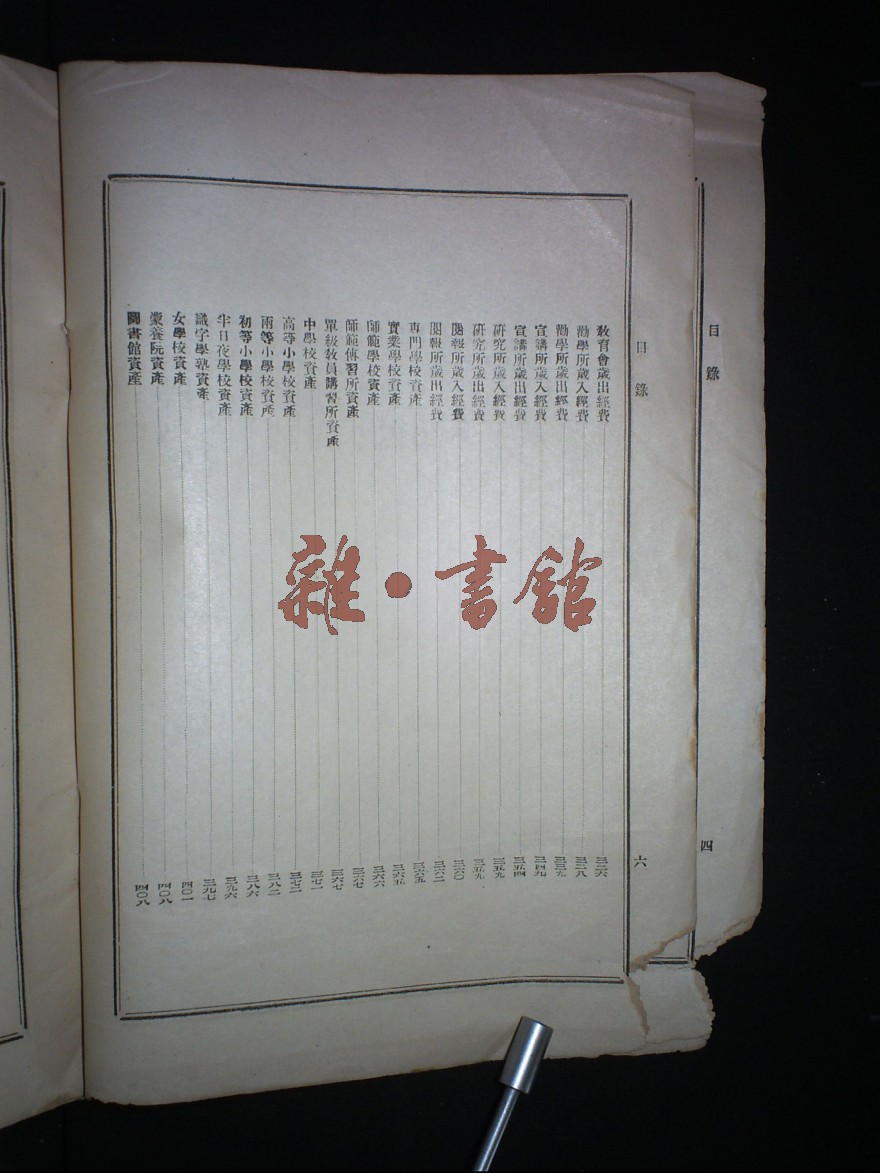 目錄
四
目錄
六
教育會歲出經費 三二六
勸學所歲入經費 三二八
勸學所歲出經費 三三九
宣講所歲入經費 三四九
宣講所歲出經費 三五四
研究所歲入經費 三五九
研究所歲出經費 三五九
閱報所歲入經費 三六〇
閱報所歲出經費 三六二
專門學校資產 三六五
實業學校資產 三六五
師範學校資產 三六六
師範傳習所資產 三六七
單級教員講習所資產 三六七
中學校資產 三七二
高等小學校資產 三七二
兩等小學校資產 三八二
初等小學校資產 三八六
半日夜學校資產 三九六
識字學塾資產 三九七
女學校資產 四〇一
蒙養院資產 四〇八
圖書館資產 四〇八
雜·書館